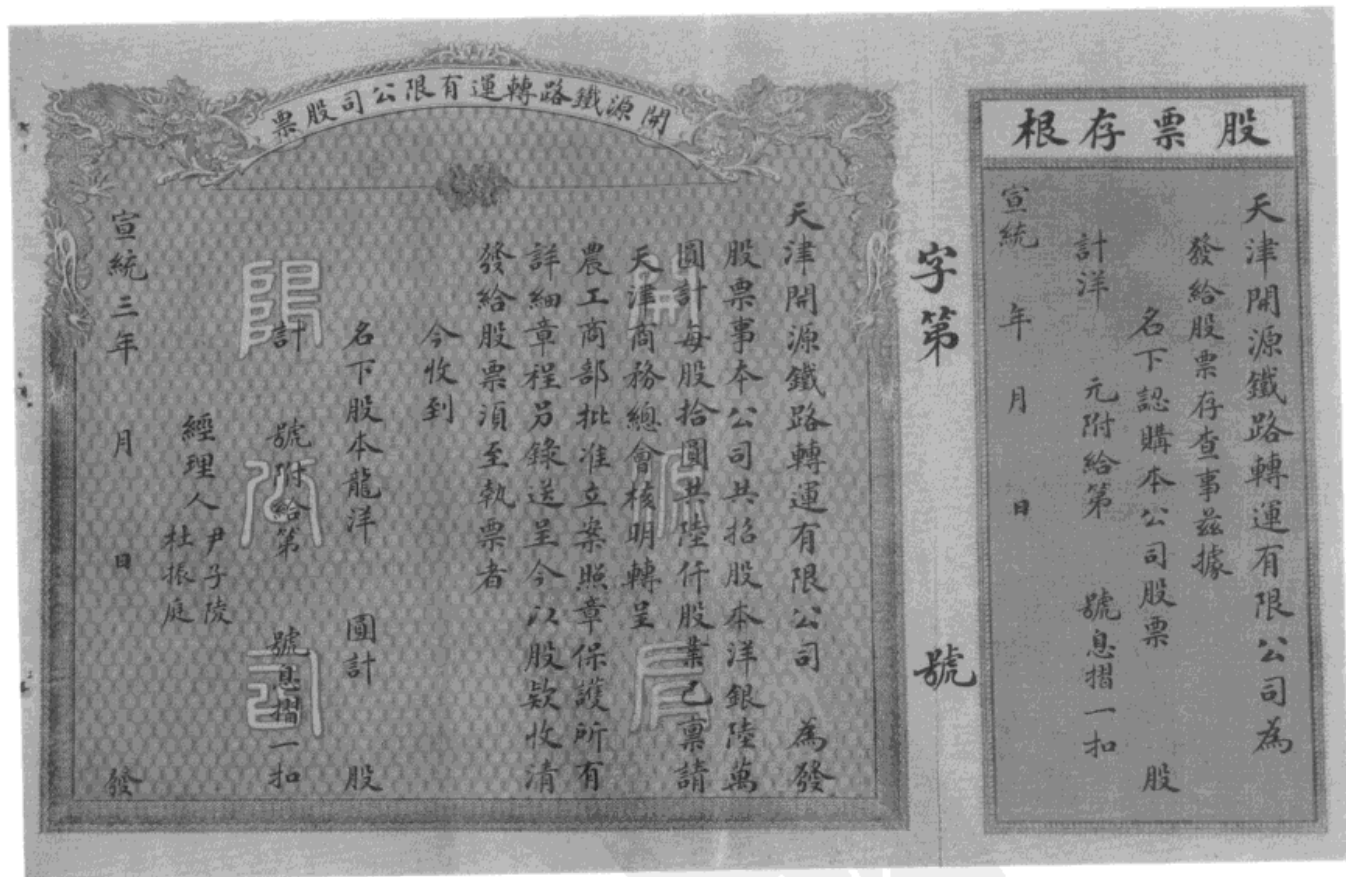 股票存根
天津開源鐵路轉運有限公司為
發給股票存查事茲據
名下認購本公司股票 股
計洋 元附給第 號息摺一扣
宣統 年 月 日
字第 號
開源鐵路轉運有限公司股票
天津開源鐵路轉運有限公司 為發
股票事本公司共招股本洋銀陸萬
圓計每股拾圓共陸仟股業已稟請
天津商務總會核明轉呈
農工商部批准立案照章保護所有
詳細章程另錄送呈今以股欵收清
發給股票須至執票者
今收到
名下股本龍洋 圓計 股
計 號附給第 號息摺一扣
經理人 尹子陵
杜振庭
宣統三年 月 日 發
開源有
限公司